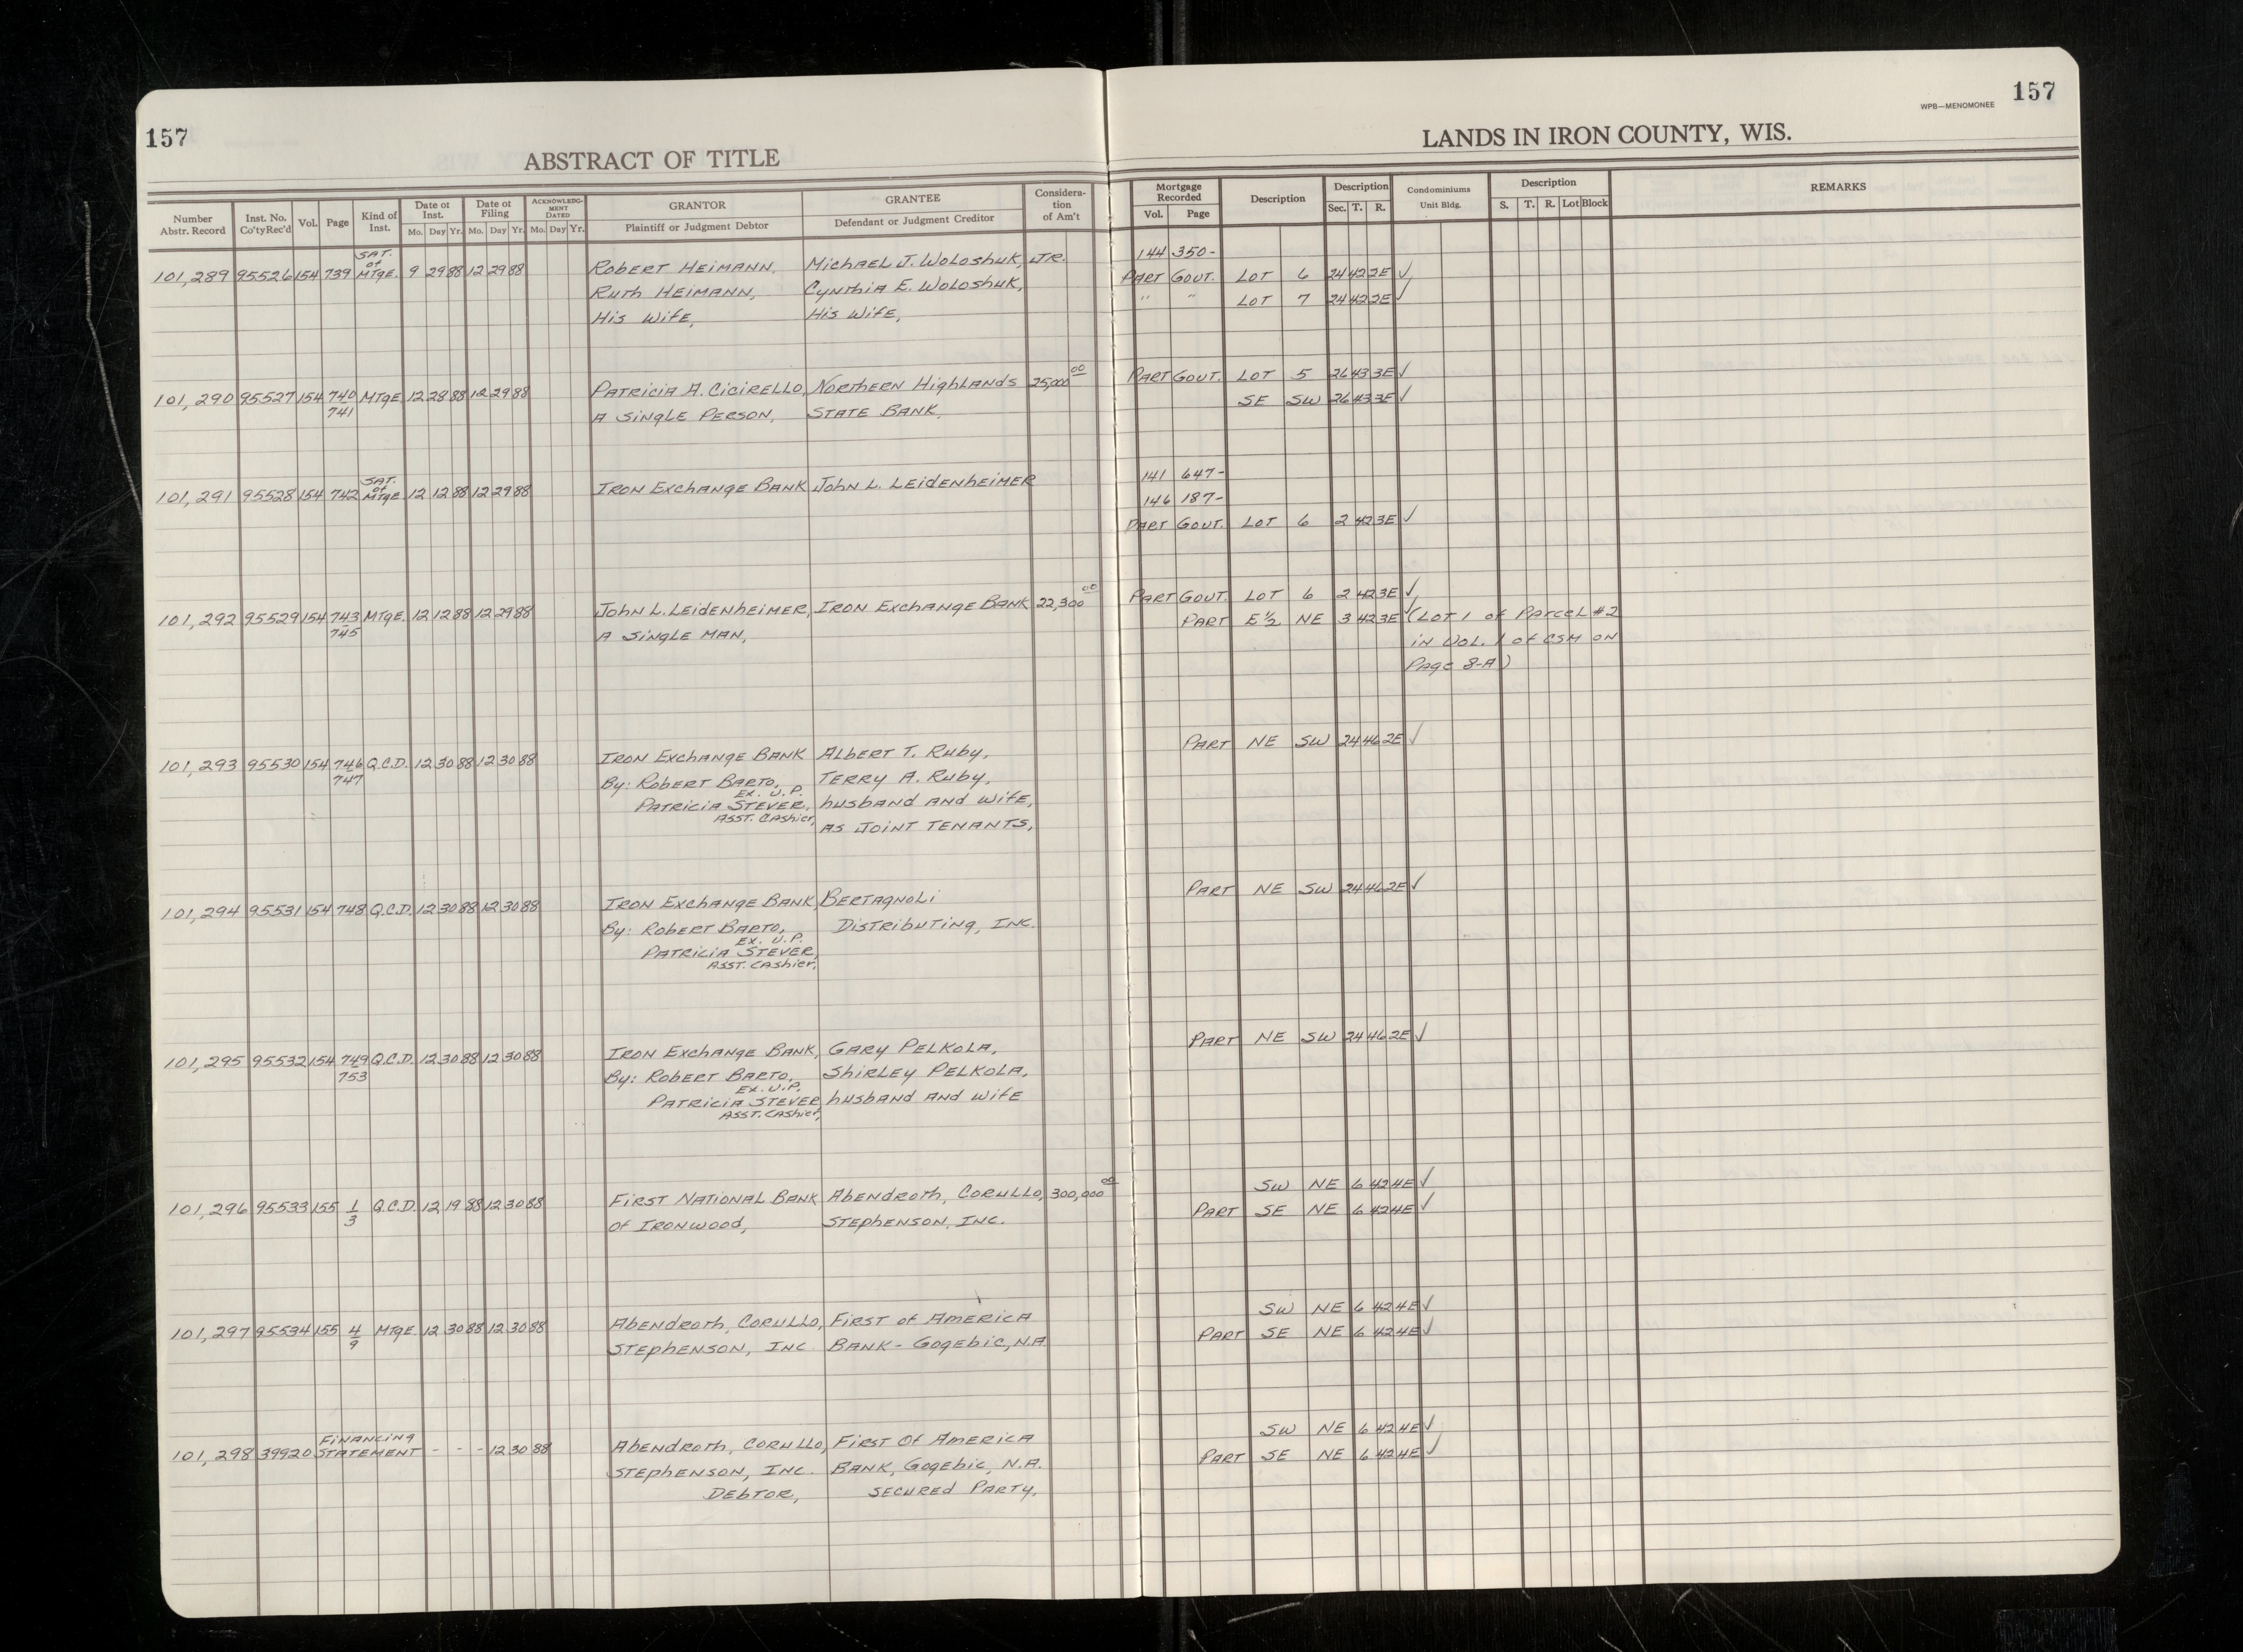 157
ABSTRACT OF TITLE
LANDS IN IRON COUNTY, WIS.
WPB—MENOMONEE
157
Number Abstr. Record | Inst. No. Co'ty Rec'd | Vol. | Page | Kind of Inst. | Date of Inst. Mo. Day Yr. | Date of Filing Mo. Day Yr. | ACKNOWLEDGMENT DATED Mo. Day Yr. | GRANTOR Plaintiff or Judgment Debtor | GRANTEE Defendant or Judgment Creditor | Consideration of Am't | Mortgage Recorded Vol. Page | Description | Description Sec. T. R. | Condominiums Unit Bldg. | Description S. T. R. Lot Block | REMARKS
101,289 95526 154 739 SAT. of MTGE. 9 29 88 12 29 88 Robert HEIMANN, Michael J. Woloshuk, JR. 144 350-
Ruth HEIMANN, Cynthia E. Woloshuk, PART GOVT. LOT 6 24 42 2E ✓
His Wife, His Wife, " " LOT 7 24 42 2E ✓
101,290 95527 154 740 741 MTGE. 12 28 88 12 29 88 PATRICIA A. CICIRELLO, NORTHERN HIGHLANDS 25,000 00 PART GOVT. LOT 5 26 43 3E ✓
A SINGLE PERSON, STATE BANK, SE SW 26 43 3E ✓
101,291 95528 154 742 SAT. of MTGE 12 12 88 12 29 88 IRON EXCHANGE BANK John L. LEIDENHEIMER 141 647-
146 187-
PART GOVT. LOT 6 2 42 3E ✓
101,292 95529 154 743 745 MTGE. 12 12 88 12 29 88 John L. LEIDENHEIMER, IRON EXCHANGE BANK 22,300 00 PART GOVT. LOT 6 2 42 3E ✓
A SINGLE MAN, PART E½ NE 3 42 3E ✓ (LOT 1 of PARCEL #2
in VOL. 1 of CSM ON
PAGE 8-A)
101,293 95530 154 746 747 Q.C.D. 12 30 88 12 30 88 IRON EXCHANGE BANK ALBERT T. Ruby, PART NE SW 24 46 2E ✓
By: ROBERT BARTO, TERRY A. Ruby,
EX. V.P.
PATRICIA STEVER, husband AND WIFE,
ASST. CASHIER,
AS JOINT TENANTS,
101,294 95531 154 748 Q.C.D. 12 30 88 12 30 88 IRON EXCHANGE BANK, BERTAGNOLI PART NE SW 24 46 2E ✓
By: ROBERT BARTO, DISTRIBUTING, INC.
EX. V.P.
PATRICIA STEVER,
ASST. CASHIER,
101,295 95532 154 749 753 Q.C.D. 12 30 88 12 30 88 IRON EXCHANGE BANK, GARY PELKOLA, PART NE SW 24 46 2E ✓
By: ROBERT BARTO, SHIRLEY PELKOLA,
EX. V.P.
PATRICIA STEVER husband AND WIFE
ASST. CASHIER,
101,296 95533 155 1 3 Q.C.D. 12 19 88 12 30 88 FIRST NATIONAL BANK Abendroth, CORULLO, 300,000 00 SW NE 6 42 4E ✓
of IRONWOOD, STEPHENSON, INC. PART SE NE 6 42 4E ✓
101,297 95534 155 4 9 MTGE. 12 30 88 12 30 88 Abendroth, CORULLO, FIRST of AMERICA SW NE 6 42 4E ✓
STEPHENSON, INC. BANK - Gogebic, N.A. PART SE NE 6 42 4E ✓
101,298 39920 FINANCING STATEMENT - - - 12 30 88 Abendroth, CORULLO, FIRST OF AMERICA SW NE 6 42 4E ✓
STEPHENSON, INC. BANK, Gogebic, N.A. PART SE NE 6 42 4E ✓
DEBTOR, SECURED PARTY,